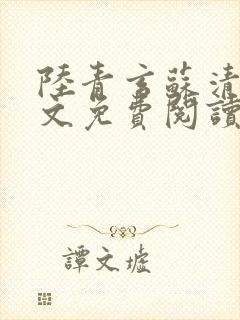 陸青言蘇清
文免費閱讀
譚文墟